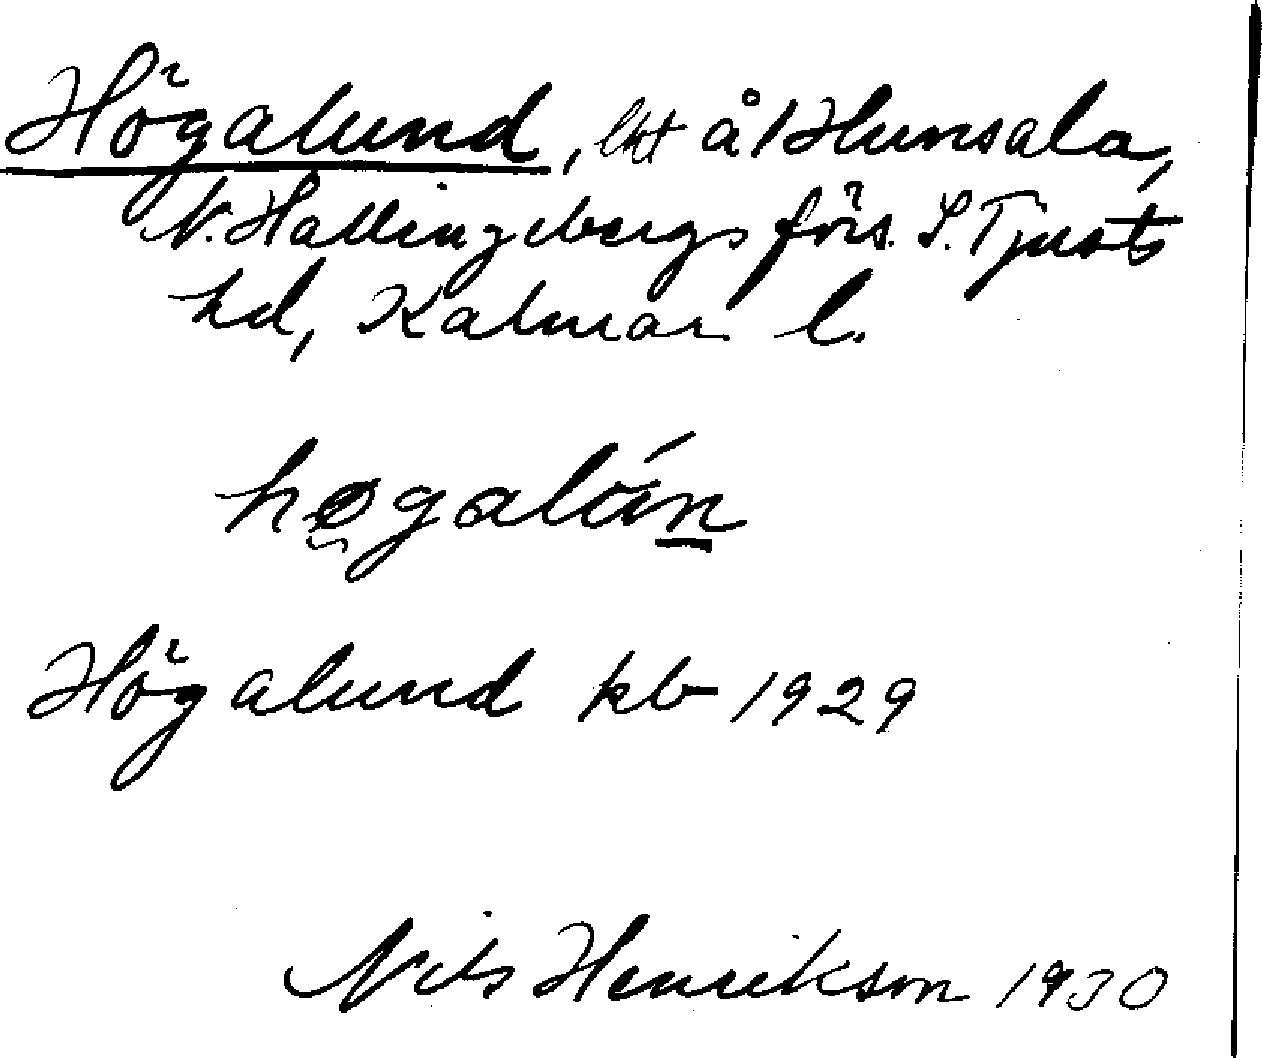 Högalund, lht å 1 Hunsala,
V. Hallingebergs förs. S. Tjusts
hd, Kalmar l.
høgalón
Högalund kb 1929
Nils Henrikson 1930